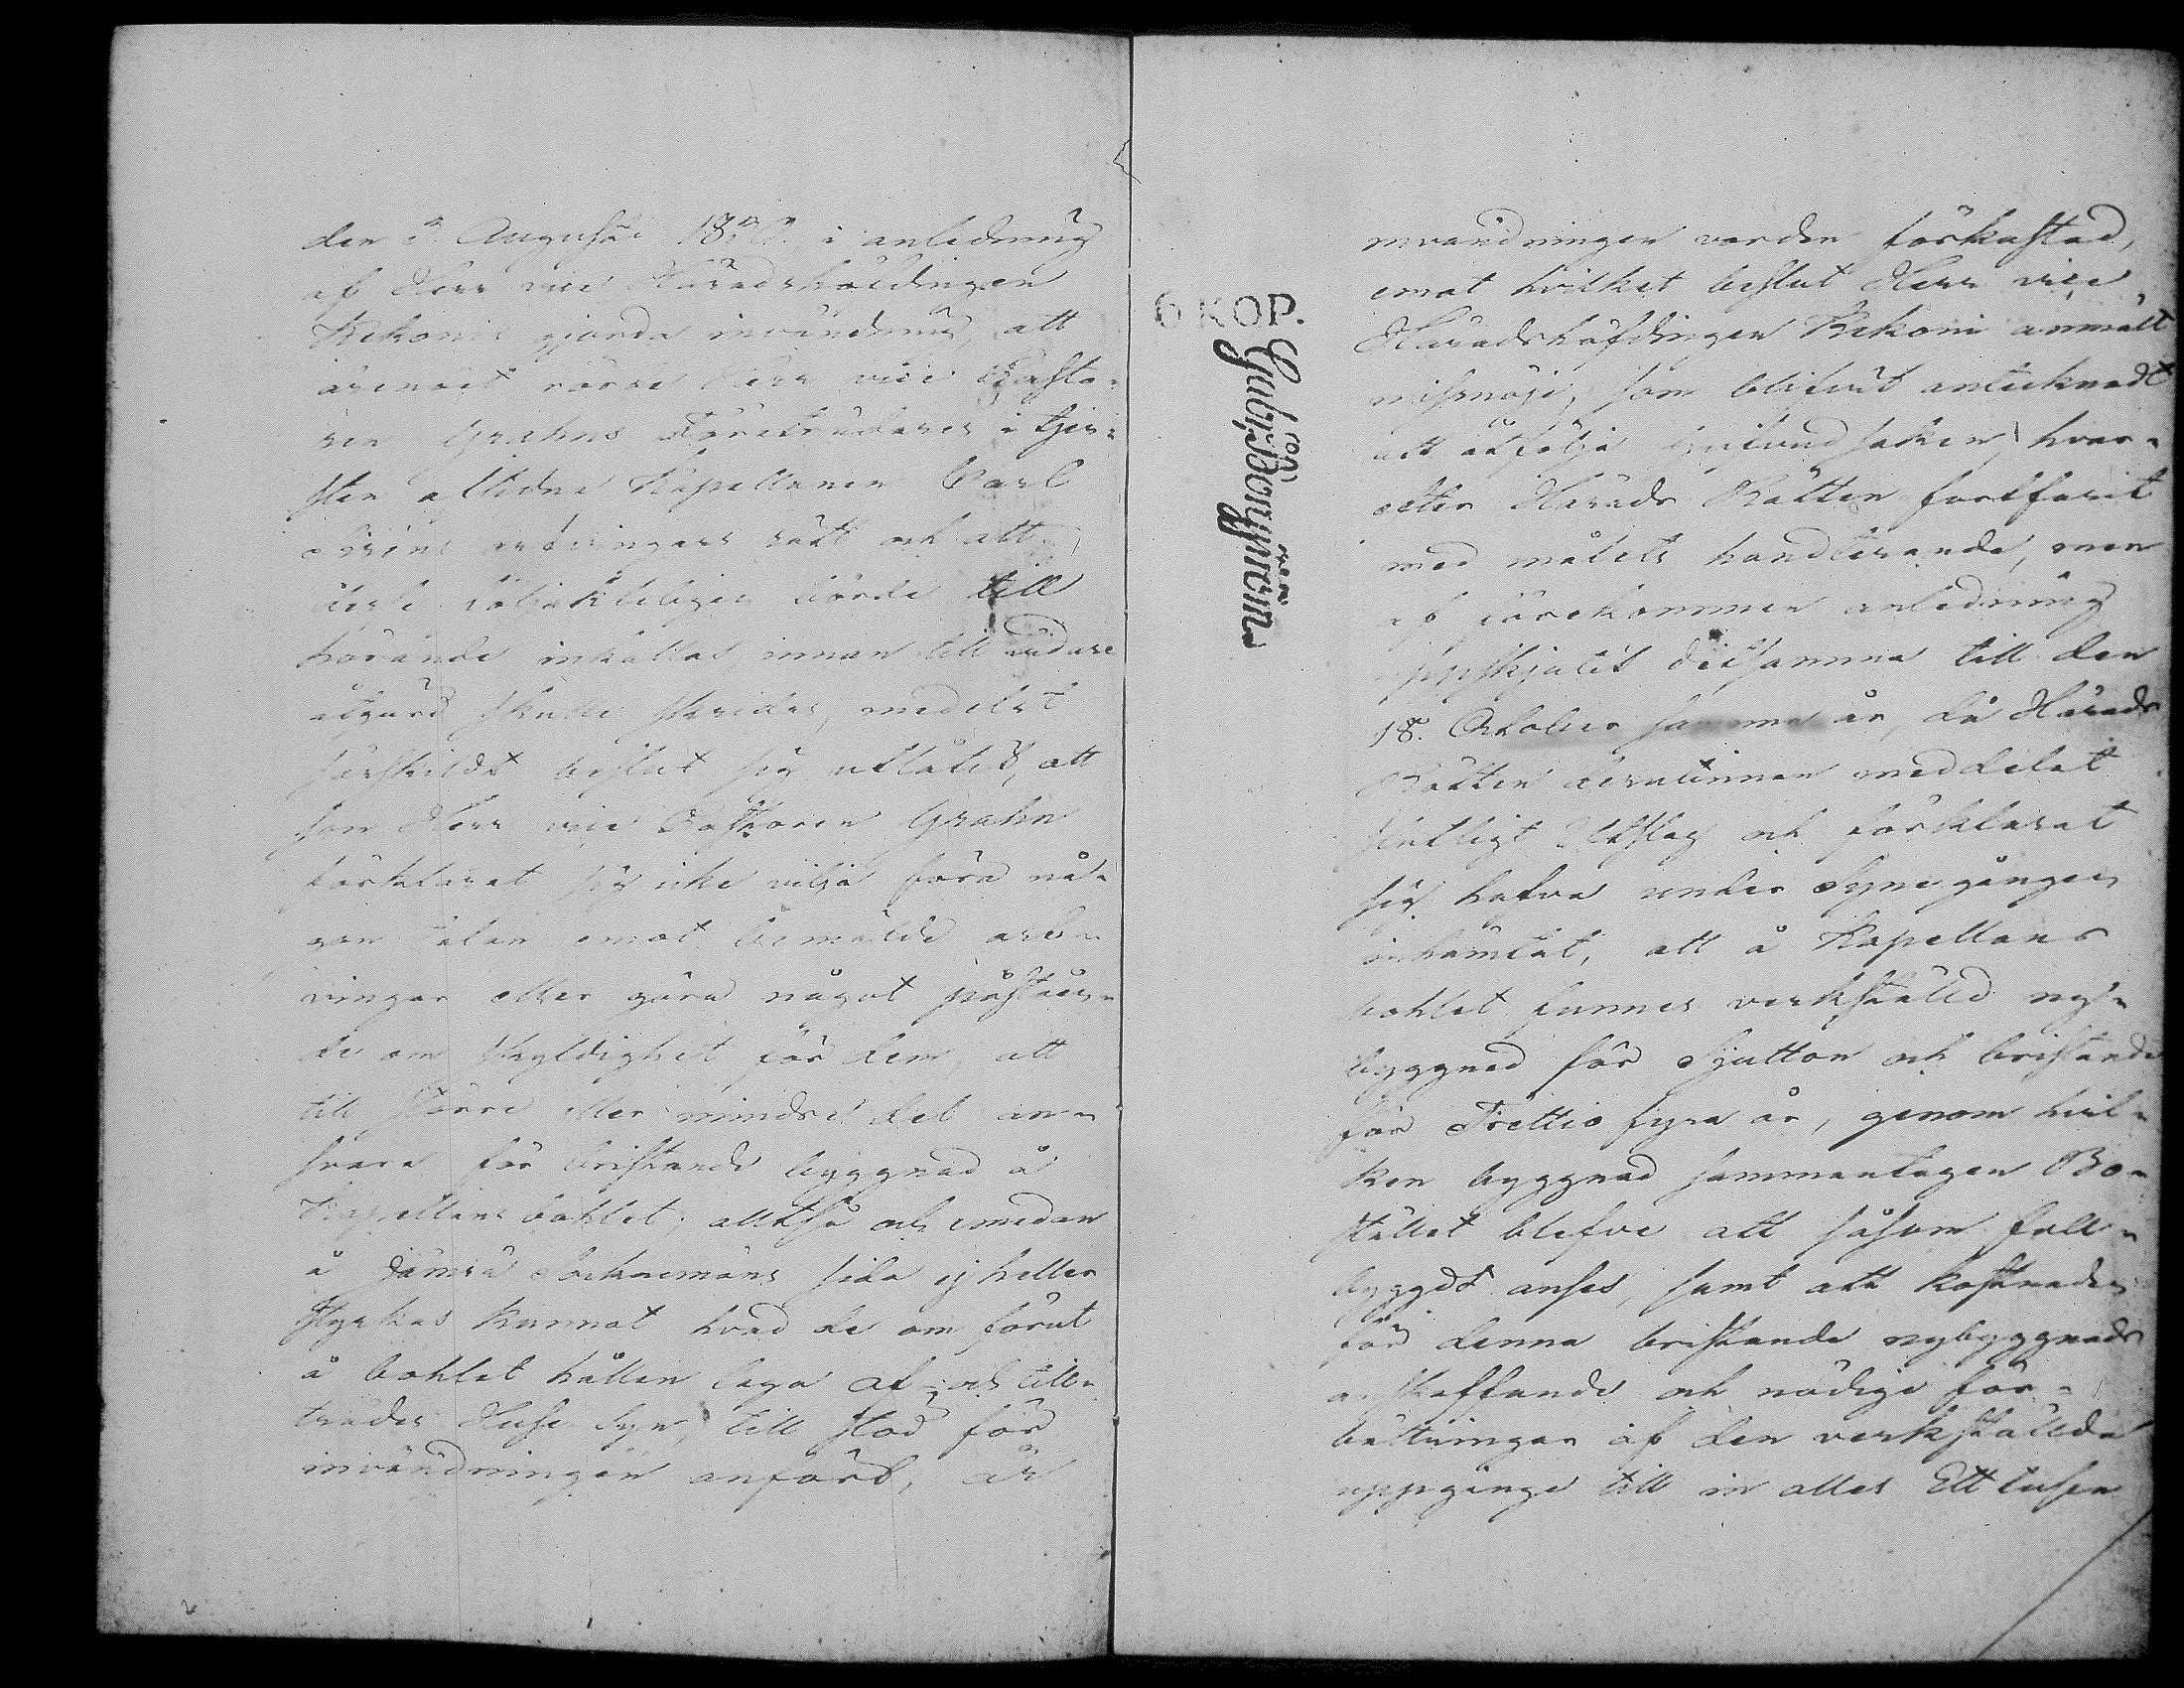 den 3. Augusti i anledning
af Herr vice Häradshöfdingen
Rekonii gjorda invändning, att
ärendet rörde Herr vice Pasto-
ren Grahns Företrädares i tjen-
sten aflidne Kapellanen Carl
arfvingars rätt och att
desse börde till
hörande inkallas innan till vidare
åtgärd skulle skridas, medelst
särskildt beslut sig utlåtit, att
som Herr vice Pastoren Grahn
förklarat sig icke vilja föra nå-
gon talan emot bemälde arf-
vingar eller göra något påståen-
de om skyldighet för dem, att
till större eller mindre del an-
svara för bristande byggnad å
Kapellans bohlet; alltså och emedan
å Jämsä Socknemäns sida ej heller
styrkas kunnat hvad de om förut
å bohlet hållen laga af- och till-
trädes Huse Syn, till stöd för
invändningen anfört, är
6 KOP.
invändningen vorden förkastad,
emot hvilket beslut Herr vice
Häradshöfdingen Rekoni anmält
missnöje, som blifvit antecknadt
att åtfölja hufvudsaken, hvar-
efter Härads Rätten fortfarit
med målets handterande, men
af förekommen anledning
uppskjutit detsamma till den
18. October samma år, då Härads
Rätten derutinnan meddelat
slutligt Utslag och förklarat
sig hafva under Synegången
inhämtat, att å Kapellans
bohlet funnes verkstäld ny-
byggnad för Sjutton och bristande
för Trettio fyra år, genom hvil-
ken byggnad sammantagen Bo-
stället blefve att såsom full-
bygdt anses, samt att kostnaden
för denna bristande nybyggnads
anskaffande och nödige för-
bättringar af den verkstälda
uppginge till in alles Ett tusen